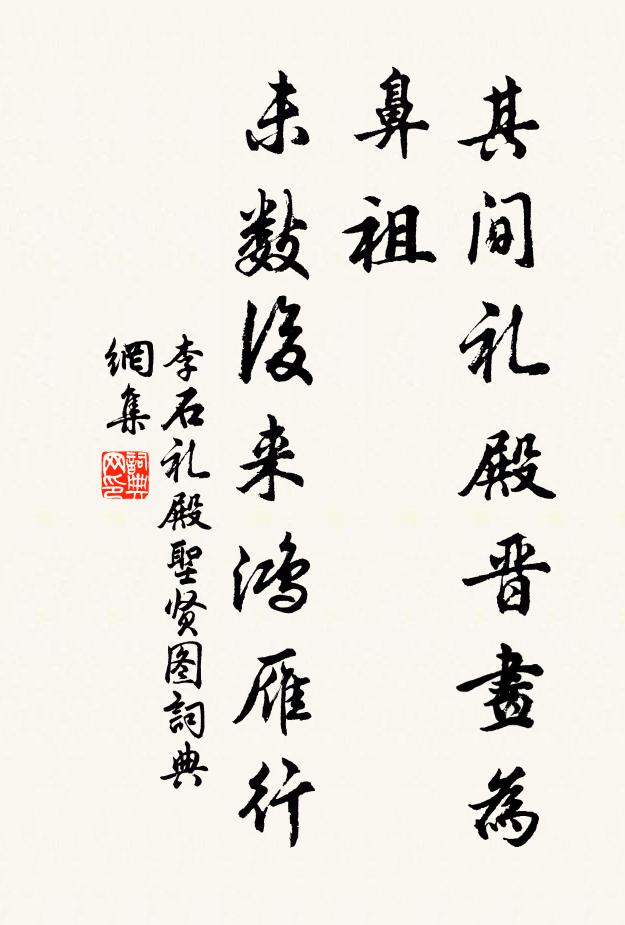 其间礼殿晋畫為
鼻祖
未数後来鸿雁行
李石礼殿聖贤图詞典
網集
詞典网印